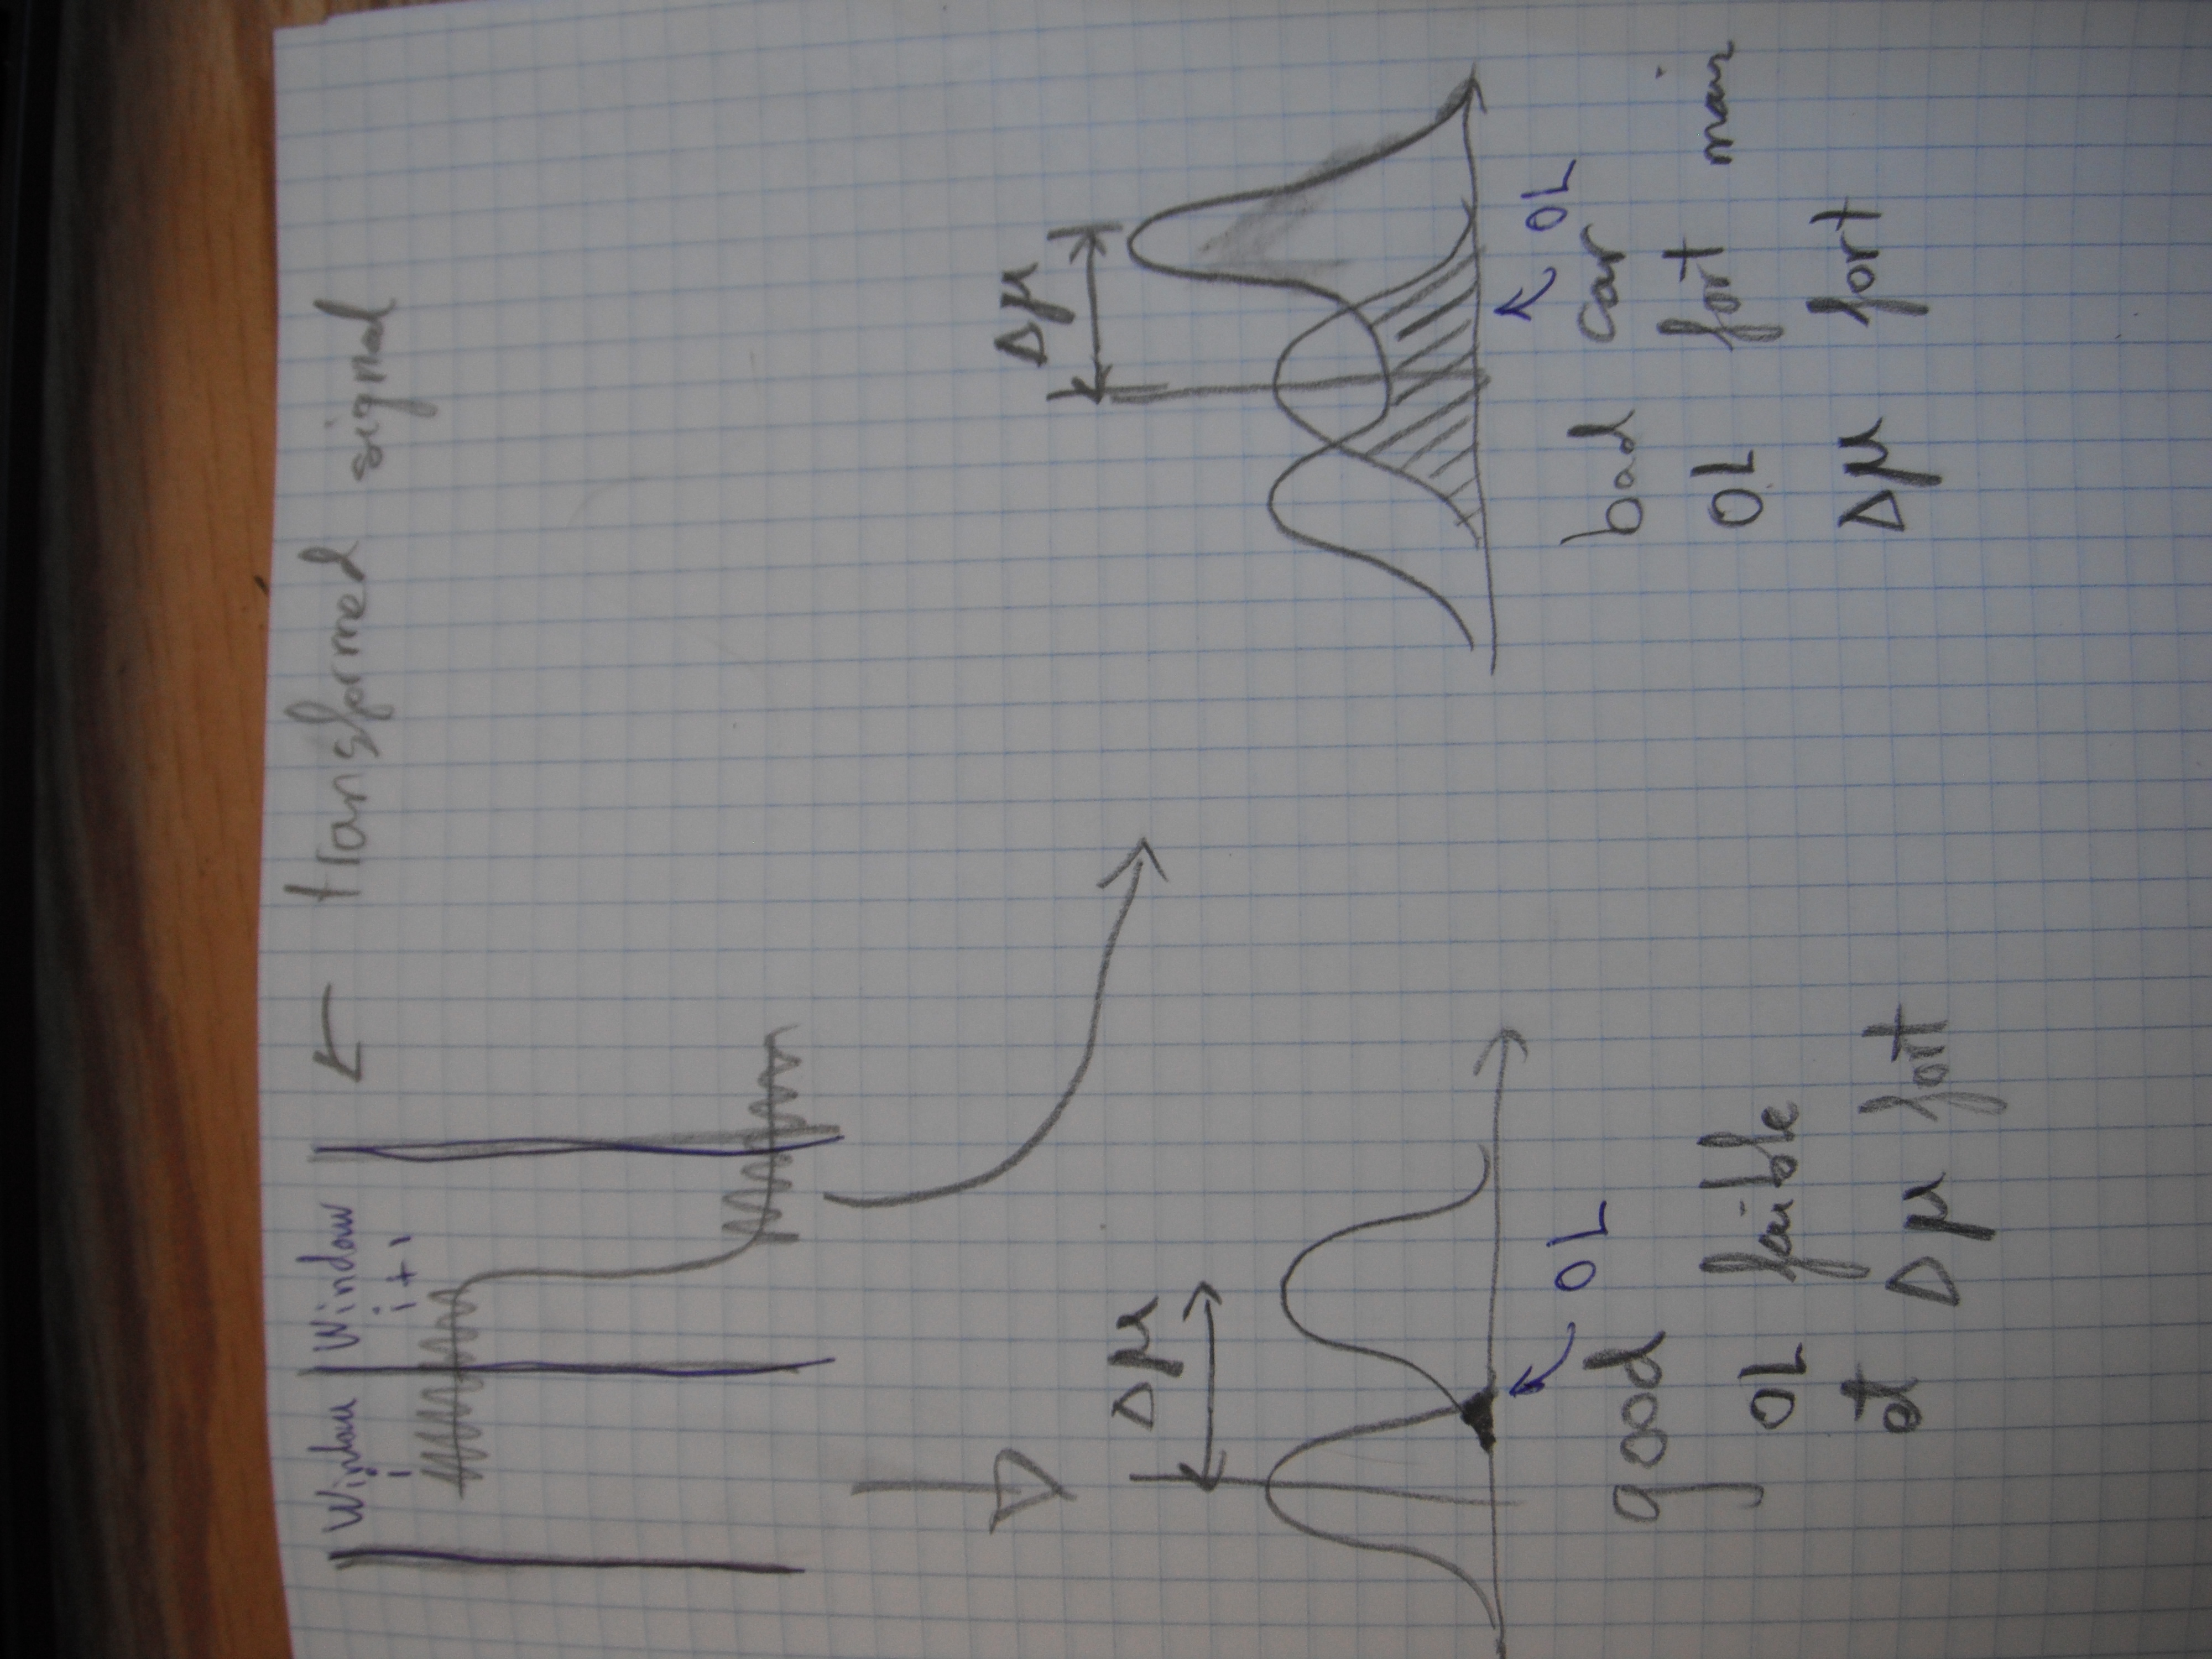 Window Window
i i+1
← transformed signal
Δμ
OL
good
OL faible
et Δμ fort
Δμ
OL
bad car
OL fort mais
Δμ fort